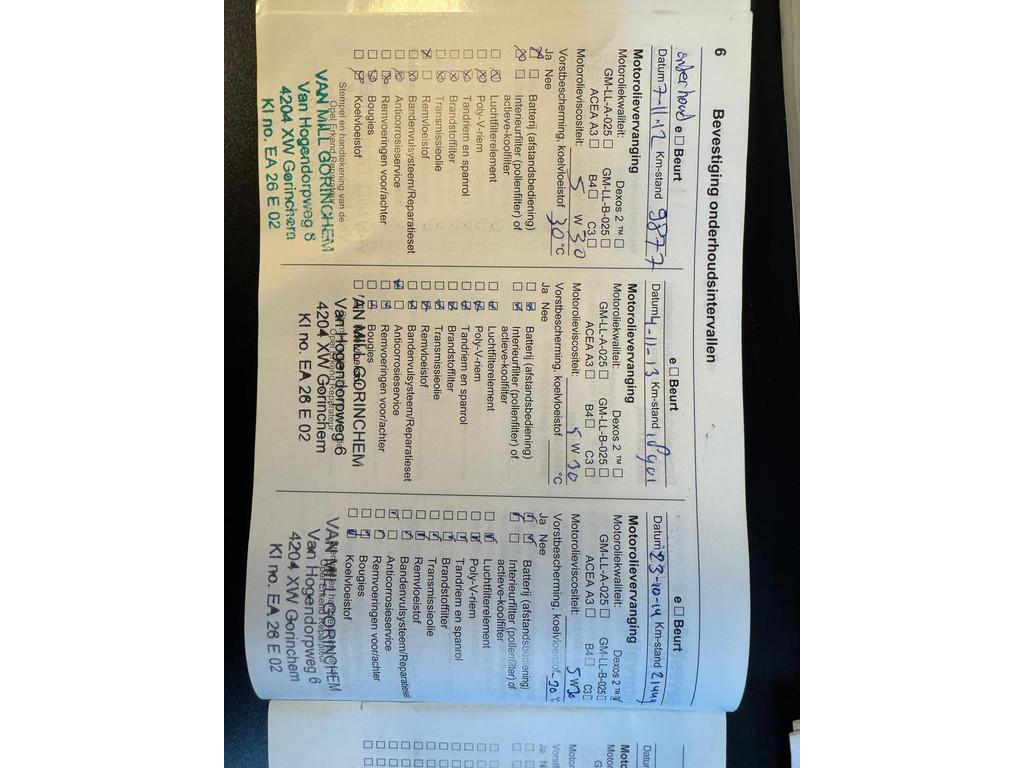 6 Bevestiging onderhoudsintervallen
onderhoud e □ Beurt
Datum 7-11-12 Km-stand 9877
Motorolievervanging
Motoroliekwaliteit: Dexos 2 ™ □
GM-LL-A-025 □ GM-LL-B-025 □
ACEA A3 □ B4 □ C3 □
Motorolieviscositeit: 5 W 30
Vorstbescherming, koelvloeistof 30 °C
Ja Nee
Batterij (afstandsbediening)
Interieurfilter (pollenfilter) of
actieve-koolfilter
Luchtfilterelement
Poly-V-riem
Tandriem en spanrol
Brandstoffilter
Transmissieolie
Remvloeistof
Bandenvulsysteem/Reparatieset
Anticorrosieservice
Remvoeringen voor/achter
Bougies
Koelvloeistof
Stempel en handtekening van de
Opel Erkend Reparateur
VAN MILL GORINCHEM
Van Hogendorpweg 6
4204 XW Gorinchem
KI no. EA 26 E 02
e □ Beurt
Datum 4-11-13 Km-stand
Motorolievervanging
Motoroliekwaliteit: Dexos 2 ™ □
GM-LL-A-025 □ GM-LL-B-025 □
ACEA A3 □ B4 □ C3 □
Motorolieviscositeit: 5 W 30
Vorstbescherming, koelvloeistof °C
Ja Nee
Batterij (afstandsbediening)
Interieurfilter (pollenfilter) of
actieve-koolfilter
Luchtfilterelement
Poly-V-riem
Tandriem en spanrol
Brandstoffilter
Transmissieolie
Remvloeistof
Bandenvulsysteem/Reparatieset
Anticorrosieservice
Remvoeringen voor/achter
Bougies
'AN MILL GORINCHEM
Van Hogendorpweg 6
Opel Erkend Reparateur
4204 XW Gorinchem
KI no. EA 26 E 02
e □ Beurt
Datum 23-10-14 Km-stand
Motorolievervanging
Motoroliekwaliteit: Dexos 2 ™
GM-LL-A-025 □ GM-LL-B-025 □
ACEA A3 □ B4 □ C3 □
Motorolieviscositeit: 5 W 30
Vorstbescherming, koelvloeistof -30 °
Ja Nee
Batterij (afstandsbediening)
Interieurfilter (pollenfilter) of
actieve-koolfilter
Luchtfilterelement
Poly-V-riem
Tandriem en spanrol
Brandstoffilter
Transmissieolie
Remvloeistof
Bandenvulsysteem/Reparatieset
Anticorrosieservice
Remvoeringen voor/achter
Bougies
Koelvloeistof
VAN MILL GORINCHEM
Opel Erkend Reparateur
Van Hogendorpweg 6
4204 XW Gorinchem
KI no. EA 26 E 02
Datum
Motor
Motoro
GM-
Motoro
Vorstb
Ja Ne